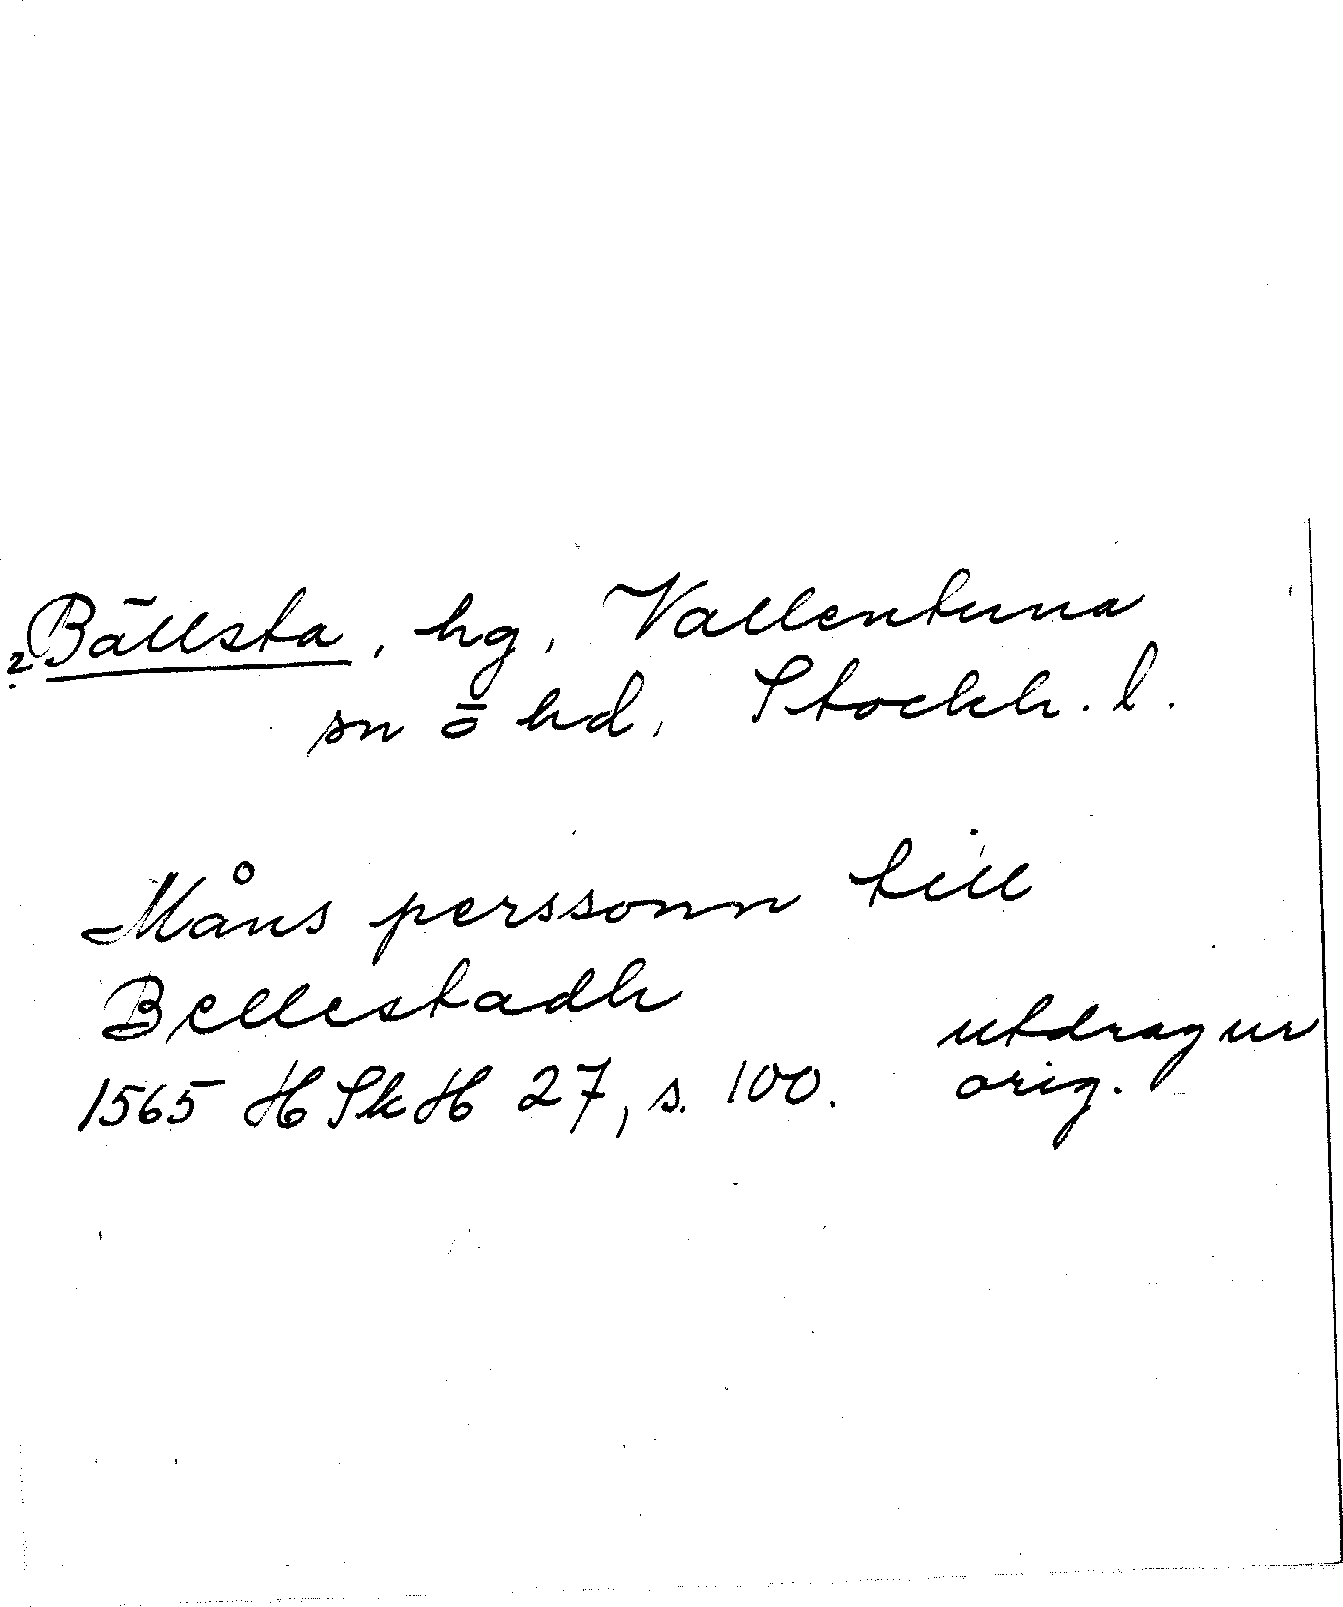 ? Bällsta, hg, Vallentuna
sn ö hd, Stockh. l.
Måns perssonn till
Bellestadh
1565 HSkH 27, s. 100. utdrag ur
orig.